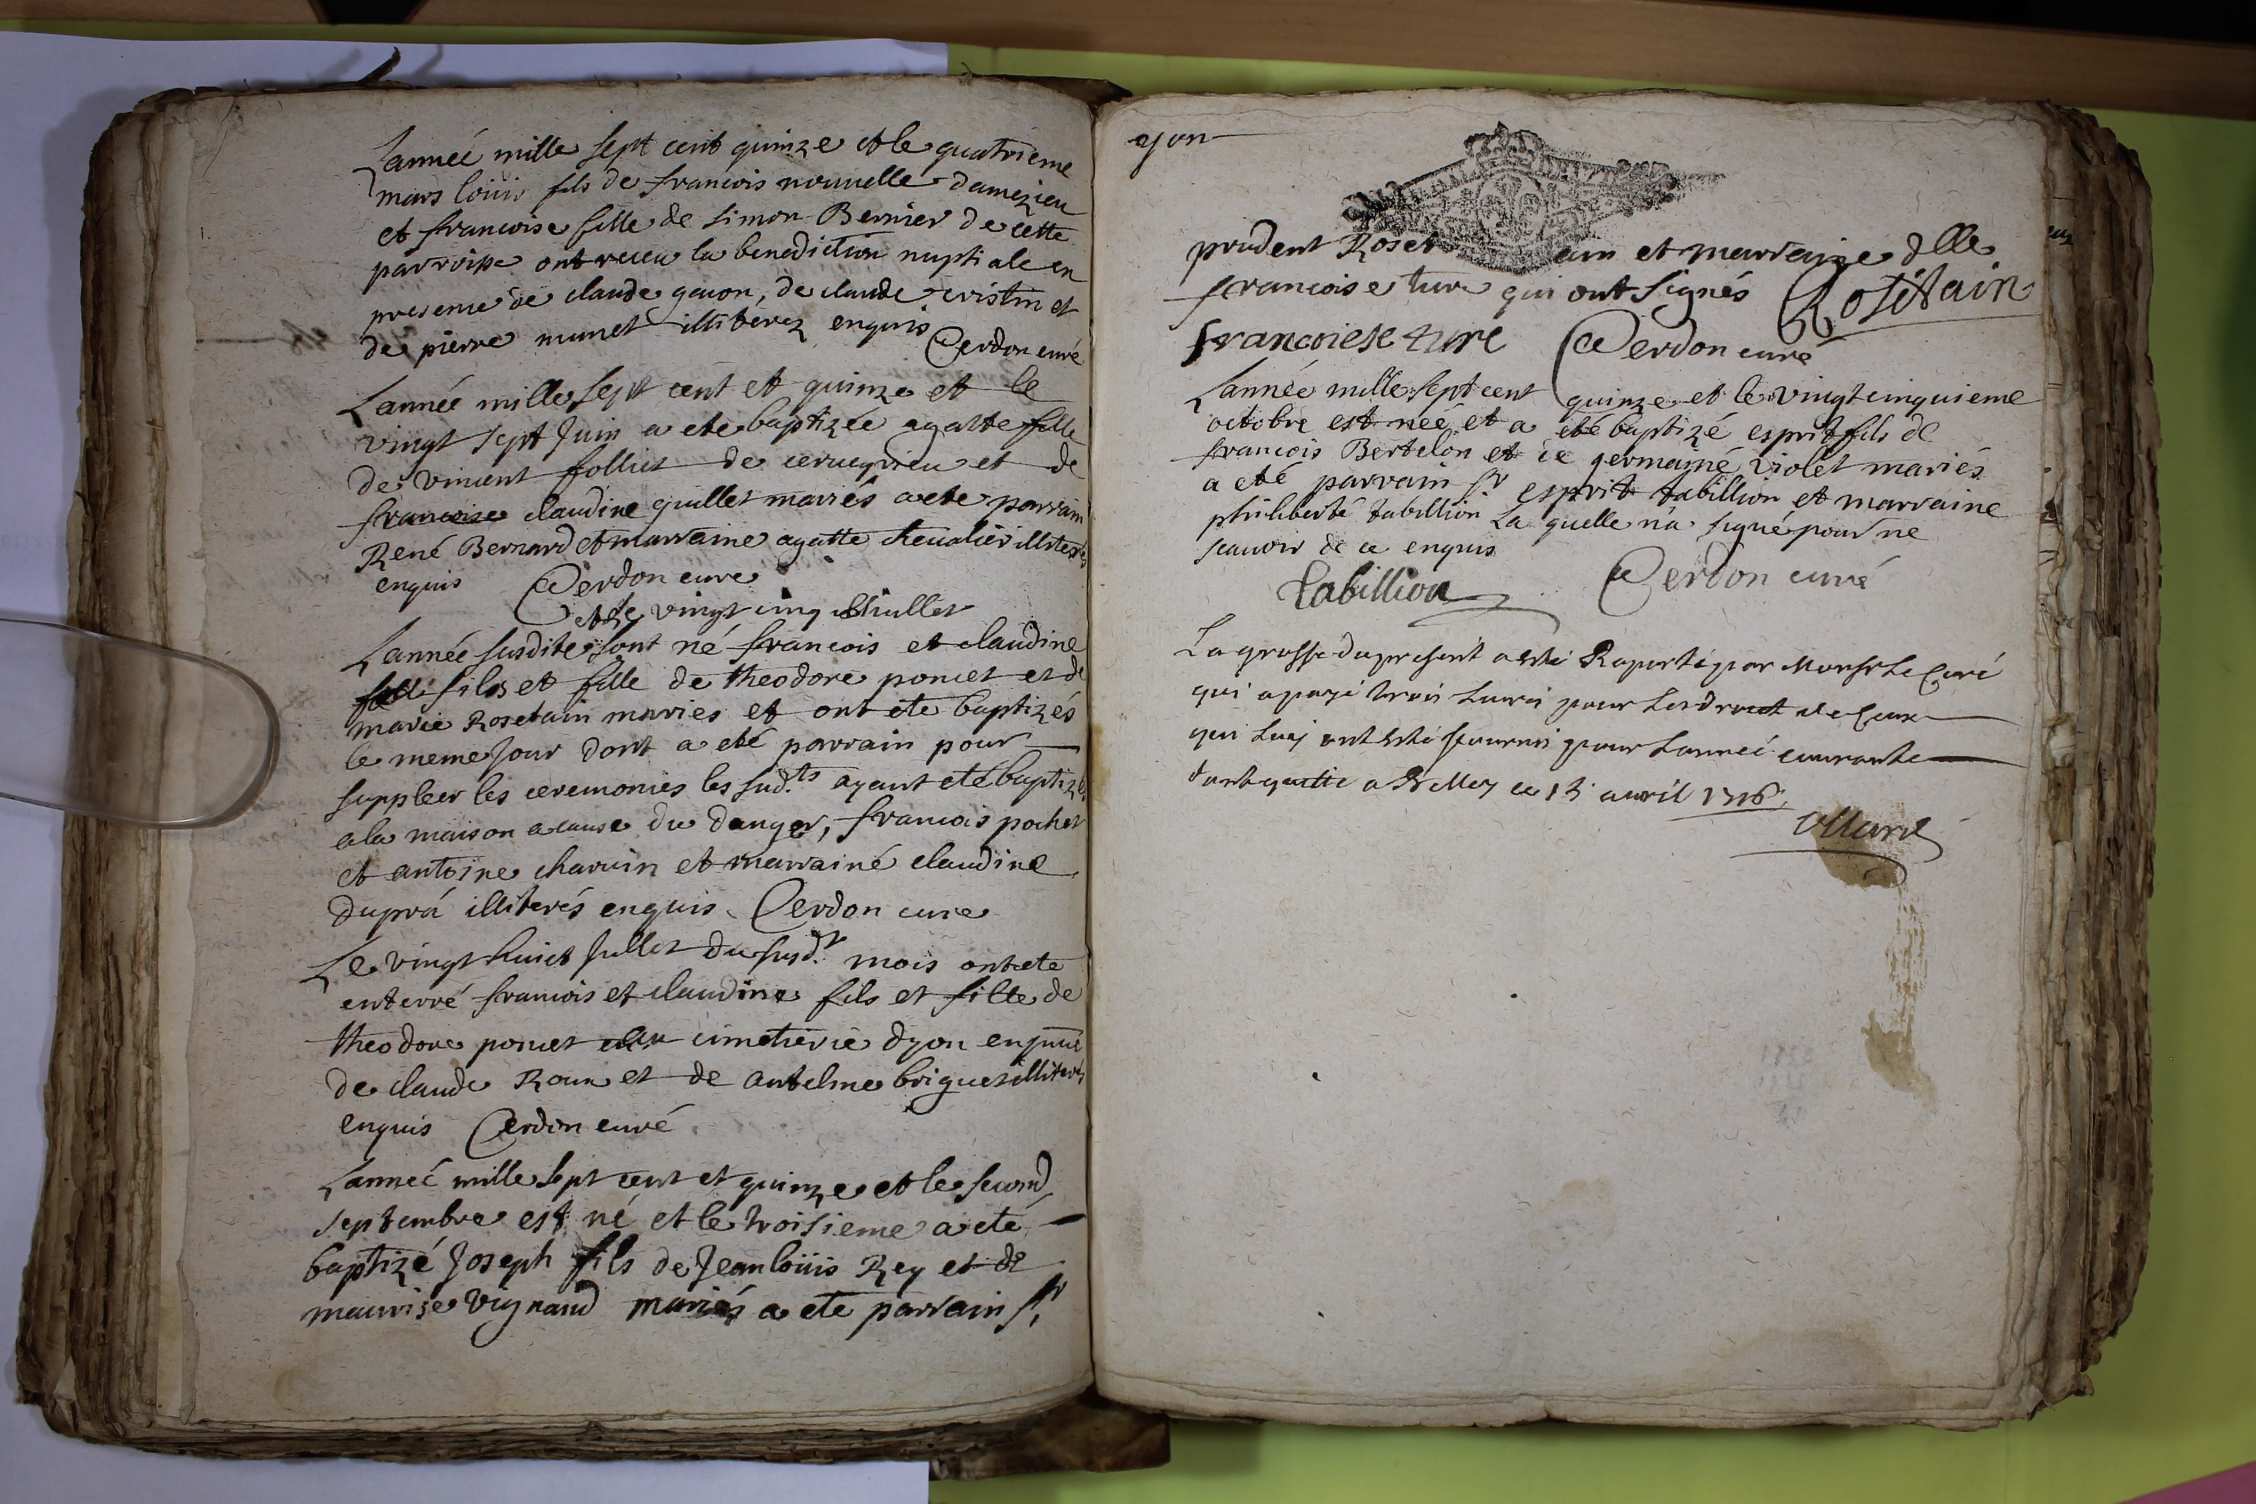 Lanneé mille sept cent quinze et le quatrieme
mars louis fils de francois nouuelle damezieu
et francoise fille de simon Bernier de cette
parroisse ont receu la benediction nuptiale en
presence de claude gauon, de claude cristin et
de pierre munet illiterez enquis Cerdon curé
Lanneé mille sept cent et quinze et le
vingt sept Juin a ete baptizée agatte fille
de vincent folliet de cerueyrieu et de
francoise claudine guillet mariés a ete parrain
René Bernard et marraine agatte cheualier illiterés
enquis Cerdon cure
et le vingt cinq Juillet
Lanneé susdite sont né francois et claudine
fils et fille de theodore poncet et de
marie Rosetain mariés et ont ete baptizés
le meme Jour dont a eté parrain pour
suppleer les ceremonies les sud.ts ayant eté baptizés
a la maison a cause du danger, francois pochet
et antoine charuin et marrainé claudine
duprá illiterés enquis Cerdon cure
Le vingt huict Jullet du susd.t mois ont ete
enterré francois et claudine fils et fille de
theodore poncet au cimetierie dyon en pnce
de claude Roux et de antelme briguet illiterés
enquis Cerdon curé
Lanneé mille sept cent et quinze et le second
septembre est né et le troisieme a eté
baptizé Joseph fils de Jean loüis Rey et de
maurise vignand mariés a ete parrain sr
yon
prudent Rosetain et marraine dlle
francoise ture qui ont signés Rosétain
francoiese ture Cerdon curé
Lanneé mille sept cent quinze et le vingt cinquieme
octobre est neé et a eté baptizé esprit fils de
francois Bertelon et de germainé violet mariés
a eté parrain sr esprit tabillion et marraine
philiberté tabillion la quelle n'a signé pour ne
scauoir de ce enquis
Tabillion Cerdon curé
La grosse du present a esté Raporté par Monsr Le Curé
qui a payé trois Liures pour Les droit de Ceux
qui Luy ont esté fournis pour Lanneé courante
dont quitte a Belley ce 13 auril 1716